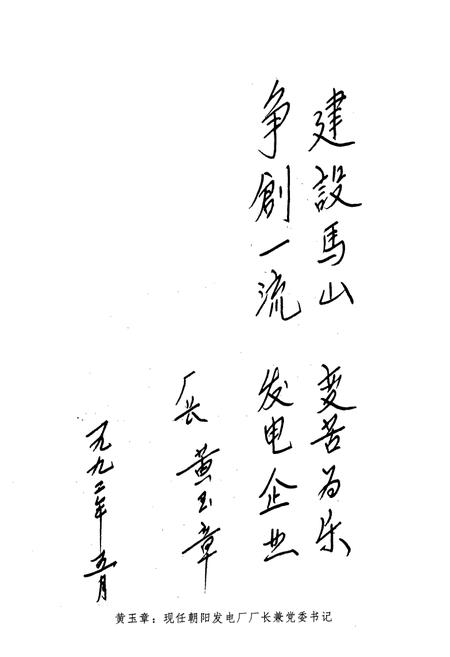 建設馬山 变苦为乐
争創一流 发电企业
厂长 黄玉章
一九九二年 五月
黄玉章：现任朝阳发电厂厂长兼党委书记